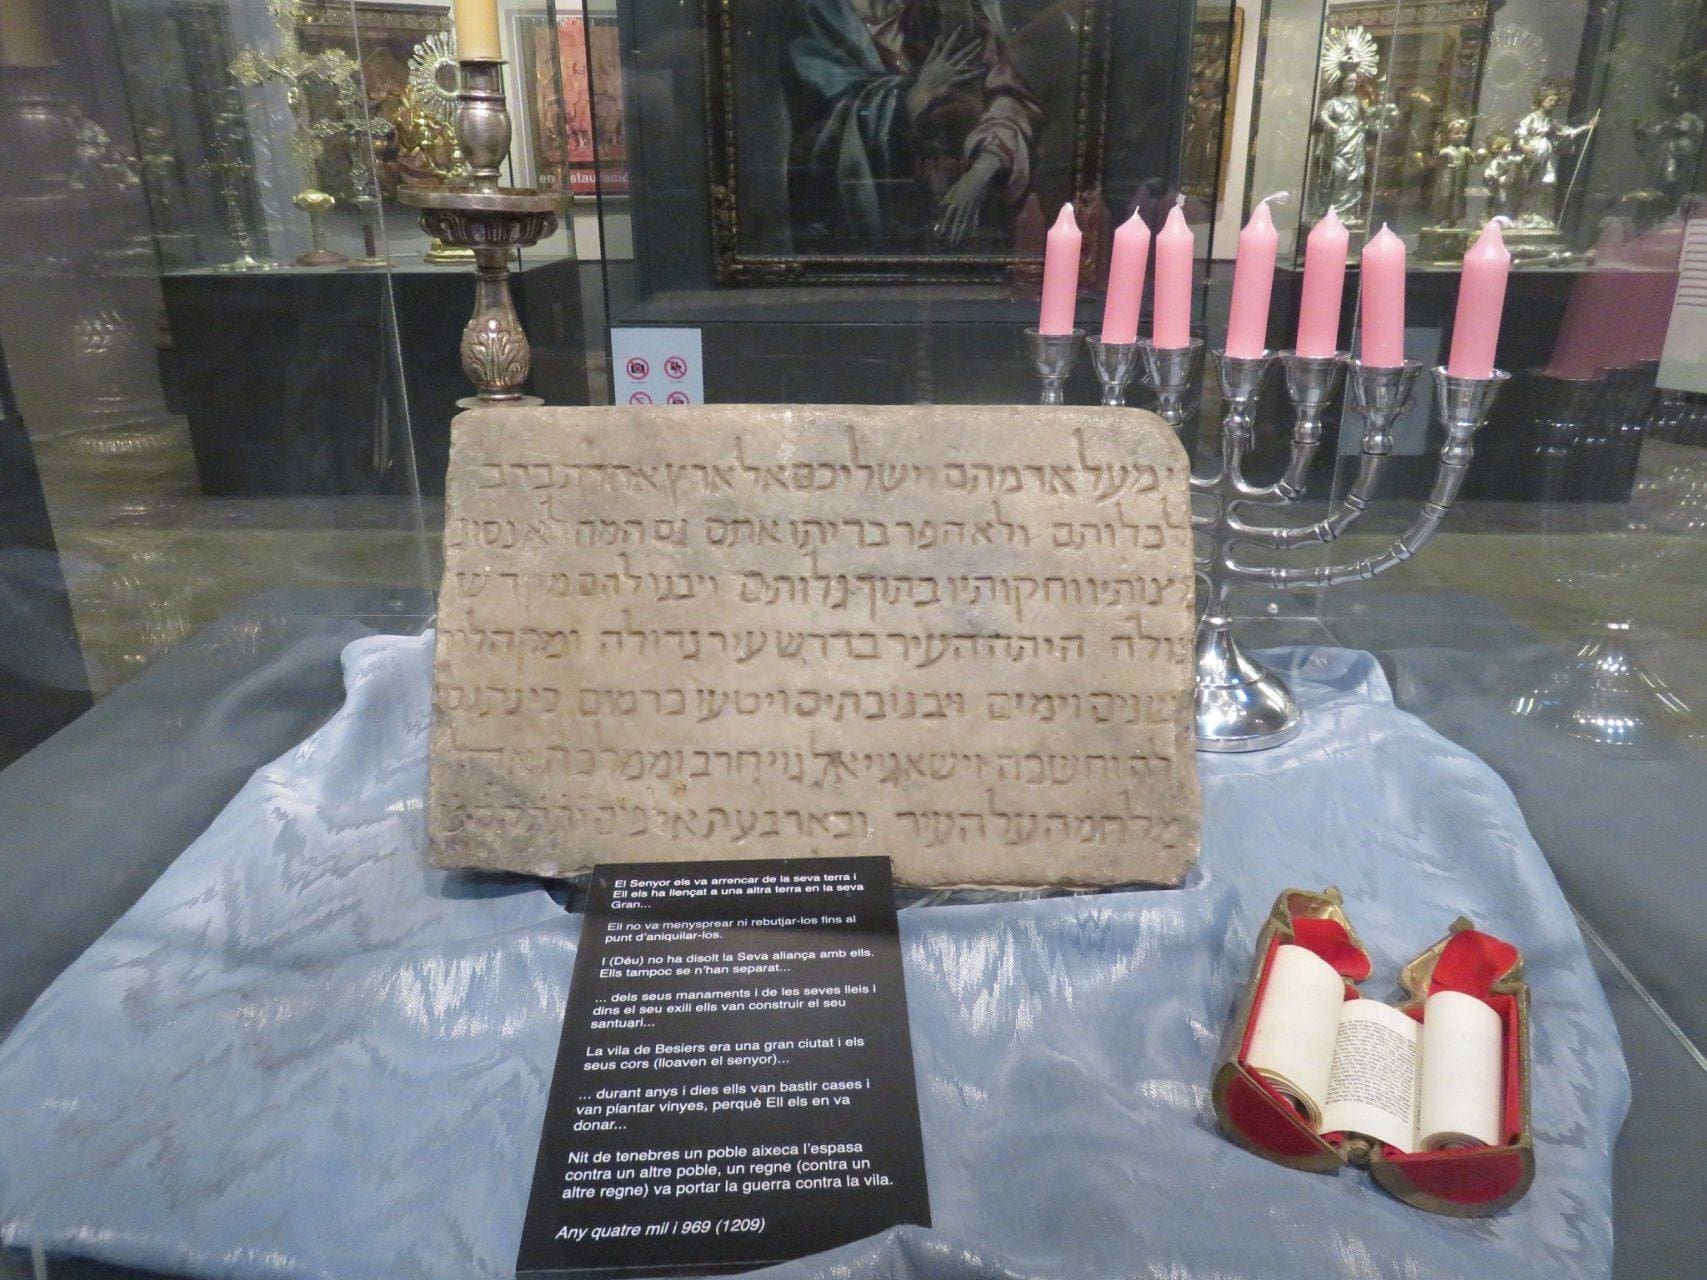 en restauració
מעל אדמהם וישליכם אל ארץ אחרת ברב
לכלותם ולא הפר בריתו אתם גם המה לא נסוגו
צותיו וחקותיו בתוך גלותם ויבנו להם מקדש
היתה העיר בדרש עיר גדולה ומקהלים
שנים וימים ויבנו בתים ויטעו כרמים כי נתנם
וחשכה וישא גוי אל גוי חרב וממלכה אל
מלחמה על העיר ובארבעת אלפים
El Senyor els va arrencar de la seva terra i
Ell els ha llençat a una altra terra en la seva
Gran...
Ell no va menysprear ni rebutjar-los fins al
punt d'aniquilar-los.
I (Déu) no ha disolt la Seva aliança amb ells.
Ells tampoc se n'han separat...
... dels seus manaments i de les seves lleis i
dins el seu exili ells van construir el seu
santuari...
La vila de Besiers era una gran ciutat i els
seus cors (lloaven el senyor)...
... durant anys i dies ells van bastir cases i
van plantar vinyes, perquè Ell els en va
donar...
Nit de tenebres un poble aixeca l'espasa
contra un altre poble, un regne (contra un
altre regne) va portar la guerra contra la vila.
Any quatre mil i 969 (1209)